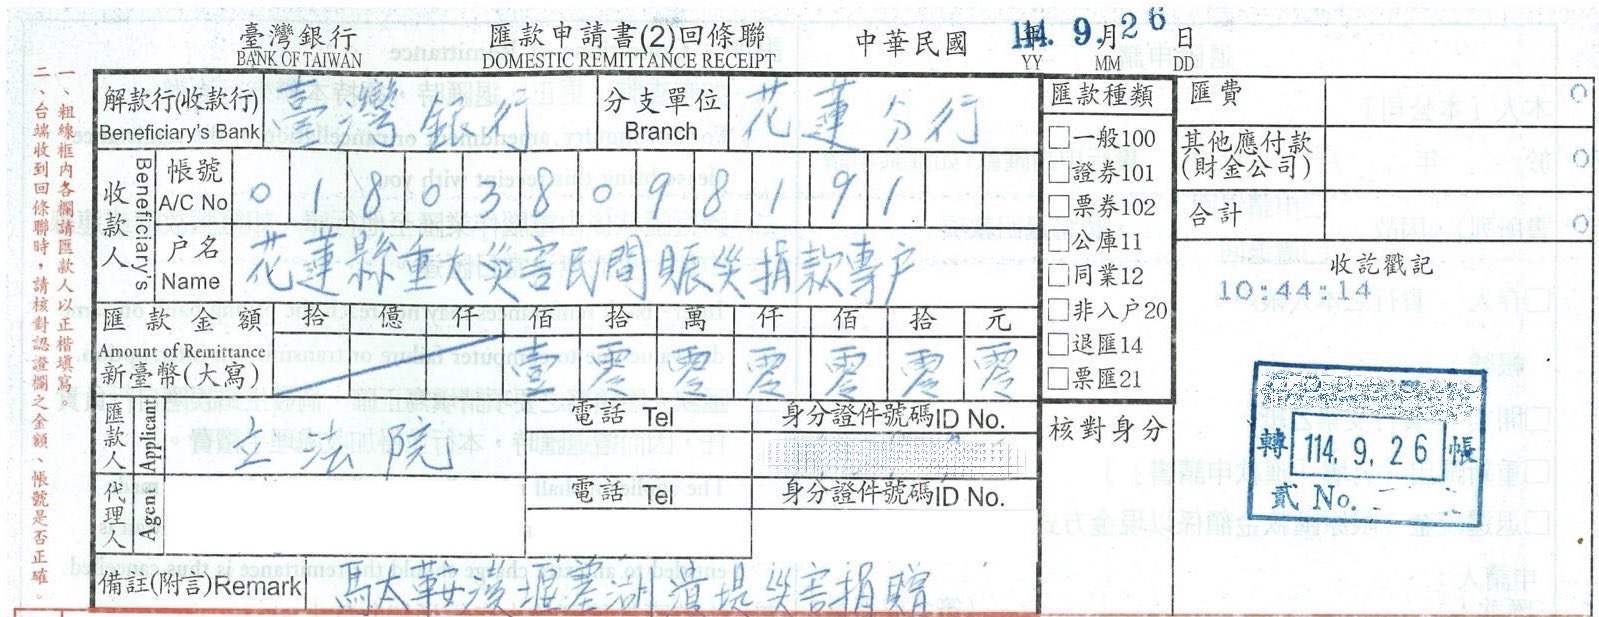 臺灣銀行 匯款申請書(2)回條聯 中華民國 114年 9月 26日
BANK OF TAIWAN DOMESTIC REMITTANCE RECEIPT YY MM DD
一、粗線框内各欄請匯款人以正楷填寫。
二、台端收到回條聯時,請核對認證欄之金額、帳號是否正確。
解款行(收款行) 臺灣銀行 分支單位 花蓮分行
Beneficiary's Bank Branch
收款人 Beneficiary's
帳號 A/C No 018038098191
户名 Name 花蓮縣重大災害民間賑災捐款專户
匯款金額 拾 億 仟 佰 拾 萬 仟 佰 拾 元
Amount of Remittance
新臺幣(大寫) 壹 零 零 零 零 零 零
匯款人 Applicant 立法院 電話 Tel 身分證件號碼ID No.
代理人 Agent 電話 Tel 身分證件號碼ID No.
備註(附言)Remark 馬太鞍溪堰塞湖潰堤災害捐贈
匯款種類
□一般100
□證券101
□票券102
□公庫11
□同業12
□非入户20
□退匯14
□票匯21
核對身分
匯費 0
其他應付款 0
(財金公司)
合計 0
收訖戳記
10:44:14
轉 114. 9. 26 帳
貳 No.